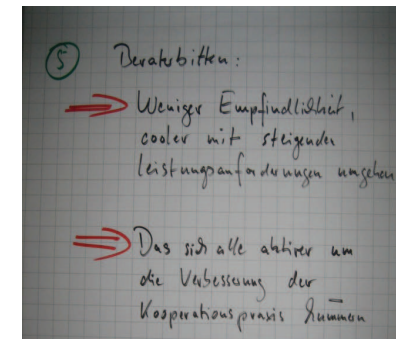 5 Beraterbitten:
Weniger Empfindlichkeit,
cooler mit steigenden
leistungsanforderungen umgehen
Das sich alle aktiver um
die Verbesserung der
Kooperationspraxis kümmern